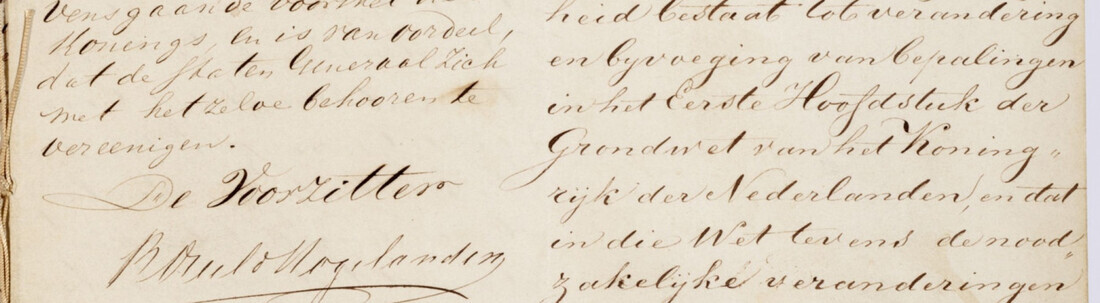 vens gaande voorstel des
Konings, en is van oordeel,
dat de Staten Generaal zich
met hetzelve behooren te
vereenigen.
De Voorzitter
heid bestaat tot verandering
en byvoeging van bepalingen
in het Eerste Hoofdstuk der
Grondwet van het Koning„
rijk der Nederlanden, en dat
in die Wet tevens de nood„
zakelijke veranderingen